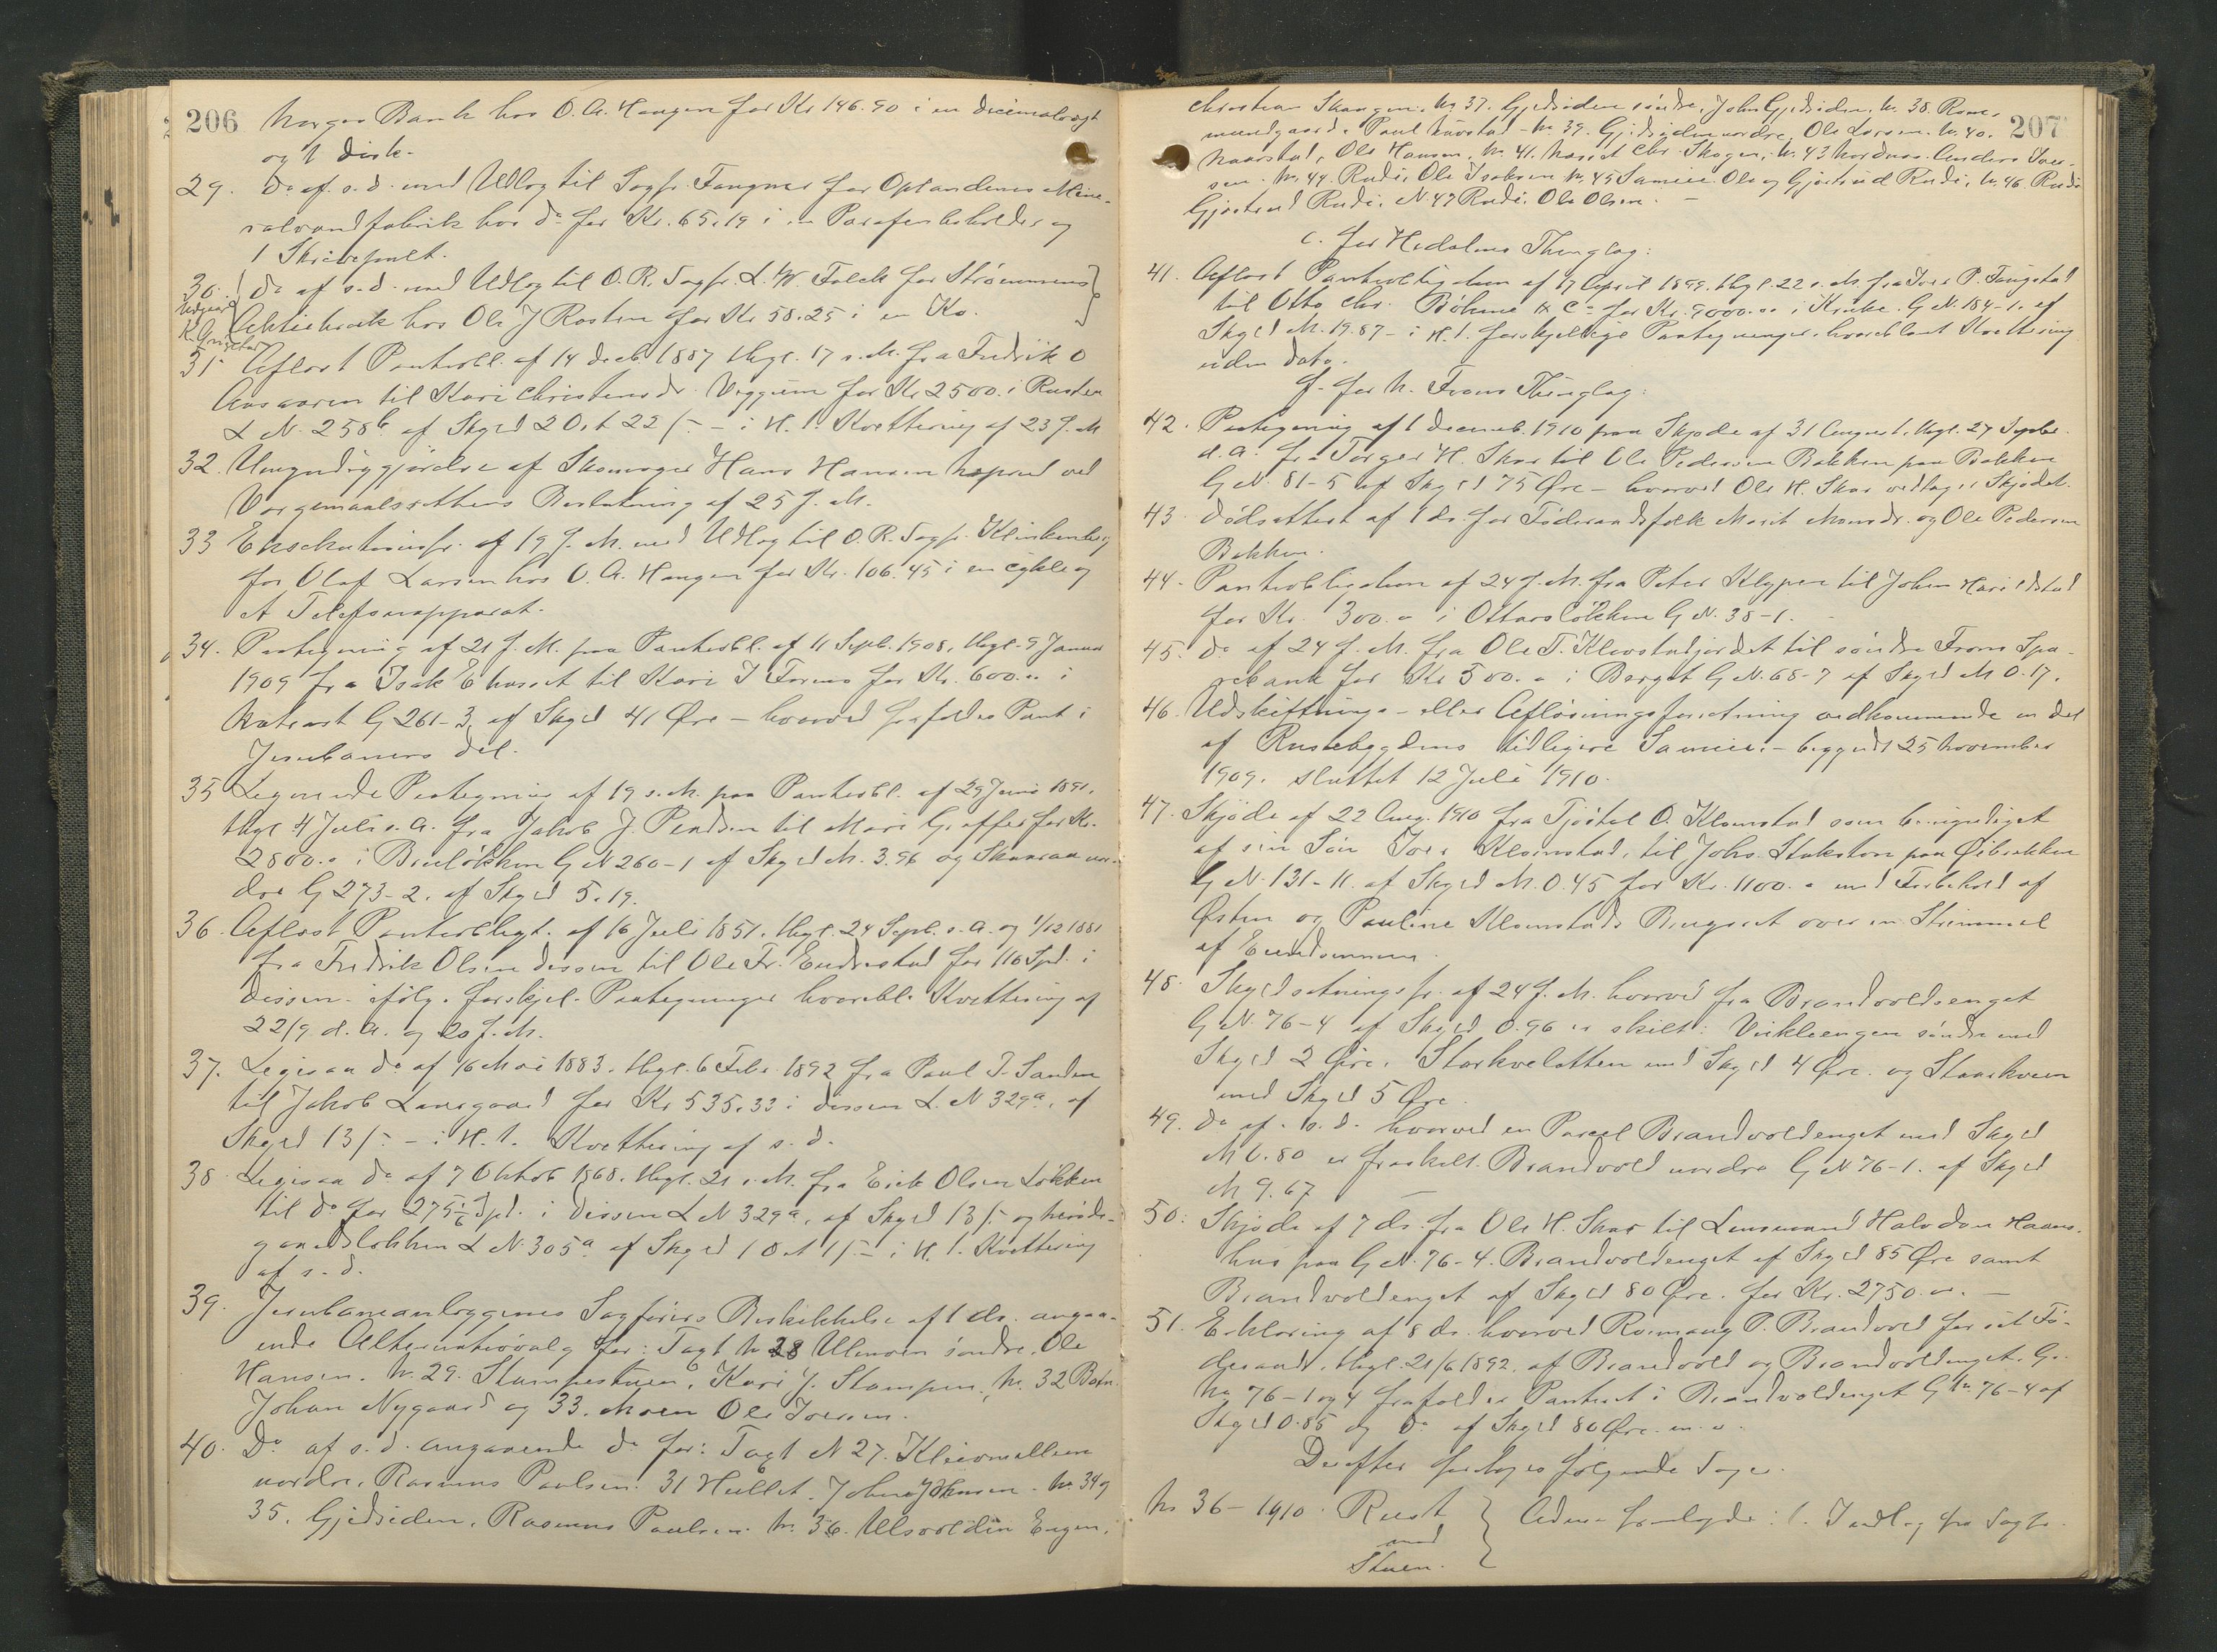 206
Norges Bank hos O. A. Haugen for Kr 146.90 i en Decimalvægt
og 1 Disk.
29. Do af s. d. med Udlog til Sagfr. Fangner for Oplandenes Mine-
ralvandfabrik hos do for Kr. 65.19 i en Parafinbeholder og
1 Skrivepult.
30. Do af s. d. med Udlog til O.R. Sagfr. L. W. Falck for Strømmens
Udgaar
Aktiebrук hos Ole J Rosten for Kr 58.25 i en Ko.
31 Aflæst Pantobl. af 14 Decb. 1887 thgl. 17 s. M. fra Fredrik O
Aasaaren til Kari Christensdr. Veggum for Kr 2500. i Rusten
L. N. 258b af Skyld 2 O. t 22 s. – i H. t. Kvittering af 23 f. M
32. Umyndiggjørelse af Skomager Hans Hansen ved
Vergemaalsrettens Beslutning af 25 f. M.
33 Exekutionsfr. af 19 f. M. med Udlog til O.R. Sagfr. Klinkenberg
for Olaf Larsen hos O. A. Haugen for Kr. 106.45 i en cykle og
et Telefonapparat.
34. Paategning af 21 f. M. paa Pantobl. af 11 Sept. 1908, thgl. 9 Januar
1909 fra Isak E til Kari J Formo for Kr. 600.00 i
G 261-3, af Skyld 41 Øre – hvorved frafaldes Pant i
Jernbanens Del.
35 Lignende Paategning af 19 s. M. paa Pantobl. af 29 Juni 1891,
thgl 4 Juli s. A. fra Jakob J. til Mari for Kr.
2800.00 i G N 260-1 af Skyld M. 3.96 og Skaaraa nor-
dre G 273-2. af Skyld 5.19.
36. Aflæst Pantobligt. af 16 Juli 1851. thgl. 24 Sept. s. A. og 1/12 1881
fra Fredrik Olsen Dessen til Ole Fr. Endrestad for 110 Spd. i
Dessen – ifølge forskjel. Paategninger hvoribl. Kvittering af
22/9 d. A. og 20 f. M.
37. Ligesaa do af 16 Mai 1883, thgl. 6 Febr. 1892 fra Paul J. Sanden
til Jakob Laurgaard for Kr 535.33 i Dessen L. N 329a, af
Skyld 13 s. – i H. t. Kvittering af s. d.
38 Ligesaa do af 7 Oktob 1868. thgl. 21 s. M. fra Erik Olsen Løkken
til do for Spd. i Dessen L N 329a, af Skyld 13 s. og
L N. 305a af Skyld 1 O. t 1 s. – i H. t. Kvittering
af s. d.
39. Jernbaneanlæggenes Sagførers Beskikkelse af 1 ds. angaa-
ende Alternativvalg for: Tagt N 28 Ulmoen søndre, Ole
Hansen. N. 29. Stampestuen, Kari J. Stampen, N. 32 Botn.
Johan Nygaard og 33. Moen Ole Iversen.
40. Do af s. d. angaaende do for: Tagt N 27. Kleivmellem
nordre, Rasmus Paulsen. 31 Hullet. Johan Johnsen. N. 34 og
35. Gjedsiden, Rasmus Paulsen. N. 36. Ulsvoldin Engen.
207
Christian Skaugen, N. 37. Gjedsiden søndre, John Gjedsiden, N. 38. Rom-
mundgaard, Paul – N. 39. Gjedsiden nordre, Ole Larsen. N. 40.
Naarstad, Ole Hansen, N. 41. Chr. Skogen, N. 43 Nordnes. Anders Iver-
sen. N. 44. Rudi, Ole Isaksen N. 45 Sameie. Ole og Gjertrud Rudi, N. 46. Rudi
Gjertrud Rudi. N 47 Rudi. Ole Olsen. –
c. for Hedalens Thinglag:
41. Aflæst Pantobligation af 17 April 1899, thgl. 22 s. M. fra Iver P. Tangstad
til Otto Chr. Bøhme & Co for Kr. 9000.00 i Kruke. G N. 184-1. af
Skyld M. 19.87 – i H. t. forskjellige Paategninger, hvoriblandt Kvittering
uden Dato.
f. for N. Frons Thinglag:
42. Paategning af 1 Decemb. 1910 paa Skjøde af 31 August, thgl. 27 Septbr
d. A. fra Torger H. Skar til Ole Pedersen Bakken paa Bakken
G N. 81-5 af Skyld 75 Øre – hvorved Ole H. Skar vedtager Skjødet.
43 Dødsattest af 1 ds. for Føderaadsfolk Marit Monsdr. og Ole Pedersen
Bakken.
44. Pantobligation af 24 f. M. fra Peter Klypen til Johan Harildstad
for Kr. 300.00 i Ottarsløkken G N. 38-1.
45. Do af 24 f. M. fra Ole T. Klevstadjordet til søndre Frons Spa-
rebank for Kr 500.00 i Berget G N. 68-7 af Skyld M 0.17.
46. Udskiftnings- eller Afløsningsforretning vedkommende en del
af Rustebygdens tidligere Sameie. – begyndt 25 November
1909, sluttet 12 Juli 1910.
47. Skjøde af 22 Aug. 1910 fra Tjøstel O. Klomstad som bemyndiget
af sin Søn Iver Klomstad, til Johs. Stakston paa Øibrekken
G N. 131-11. af Skyld M. 0.45 for Kr. 1100.00 med Forbehold af
Østen og Pauline Klomstads Brugsret over en Strimmel
af Eiendommen.
48. Skyldsætningsfr. af 24 f. M. hvorved fra Brandvoldsenget
G N. 76-4 af Skyld 0.96 er skilt: Virkleengen søndre med
Skyld 2 Øre, Storkveslotten med Skyld 4 Øre. og Staarkveen
med Skyld 5 Øre.
49. Do af s. d. hvorved en Parcel Brandvoldenget med Skyld
M 0.80 er fraskilt Brandvold nordre G N 76-1. af Skyld
M 9.67 –
50. Skjøde af 7 ds. fra Ole H. Skar til Lensmand Halvdan Haans-
hus paa G N. 76-4. Brandvoldenget af Skyld 85 Øre samt
Brandvoldenget af Skyld 80 Øre. for Kr. 2750.00. –
51. Erklæring af 8 ds. hvorved P. Brandvold for sit Fø-
deraad, thgl. 21/6 1892, af Brandvold og Brandvoldenget, G.
N. 76-1 og 4 frafalder Panteret i Brandvoldenget G N 76-4 af
Skyld 0.85 og Do af Skyld 80 Øre. m. v.
Derefter foretoges følgende Sager.
N. 36 – 1910. Rust
med
Stuen.
Adv. fremlagde: 1. Indlæg fra Sagfr.